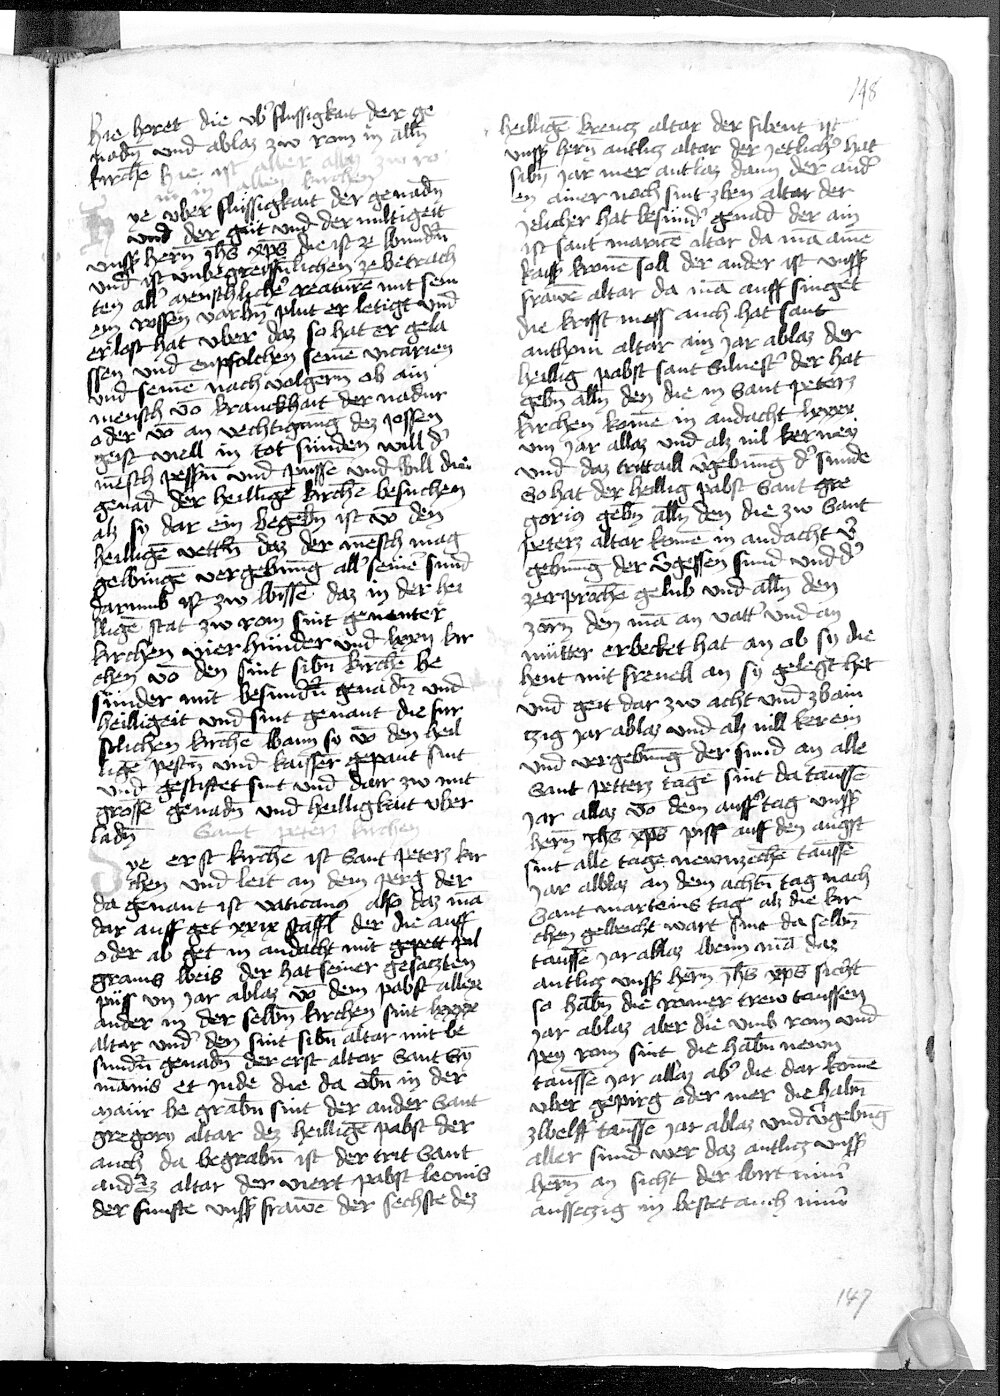 148
hie horet die ubˀ flussigkait der ge
nadn̄ und ablas zw rom in alln̄
kirche
hie ist aller ablas zw ro
in allen kirchen
ye uber flussigkait der genadn̄
und der guit und der miltigeit
unsˀs hern̄ ihs xps die ist ze bundn̄
und ist unbegreiffenlichen ze betrach
ten allˀ menschlichˀ creature mit sem
em rossen varbn̄ plut er letigt und
erlost hat uber daz so hat er gela
ssen und enpfolchen seinē vicarien
und seinē nach volgern̄ ob ain
mensch vō kranckhait der nadur
oder vō an vechtigung dez possen
geist viell in tot sunden will dˀ
mēsch pessn̄ und pussē und will die
genad der heilligē kirchē besuchen
alz sy dar ein begebn̄ ist vō den
heiligē vettn̄ daz der mēsch mag
gelbingē vergebūng allˀ seinē sund
darumb ist zw wissē daz in der hei
lligē stat zw rom sint genenter
kirchen vier hunder und lxxij kir
chen vō den sint sibn̄ kirchē be
sunder mit besundn̄ genadn̄ und
heilligeit und sint genant die fur
stlichen kirchē wann sy vō den heil
ligē pestn̄ und kaisser gepaut sint
und gestiftet sint und dar zw mit
grossē genadn̄ und heilligkait uber
ladn̄
Sant peters kirchen
ye erst kirchē ist Sant peters kir
chen und leit an dem perg der
da genant ist vaticanus also daz mā
dar auff get xxix staffl der die auff
oder ab get in andacht mit gepett pil
grams weis der hat seiner gesaczten
puss vij jar ablas vō dem pabst allex
ander in der selbn̄ kirchen sint lxxxx
altar und den sint sibn̄ altar mit be
sundn̄ genadn̄ der erst altar Sant Sy
manis et Jude die da obn̄ in der
maur be grabn̄ sint der ander Sant
gregory altar dez heilligē pabst der
auch da begrabn̄ ist der trit Sant
andrez altar der viert pabst leonis
der funfte unsˀs frawē der sechste dez
heilligē kreucz altar der sibent ist
unsˀs hern̄ antlicz altar der jetlichˀ hat
sibn̄ jar mer antlas dann der andˀ
en ainer noch sint zben altar der
jelicher hat besundˀ genad der ain
ist sant mauricē altar da mā ainē
kaissˀ kronē soll der ander ist unsˀs
frawē altar da mā auff singet
die krisst mess auch hat sant
anthoni altar ain jar ablas der
heillig pabst sant Silvestˀ der hat
gebn̄ alln̄ den die in Sant peters
kirchen komē in andacht lxxxx
vm jar allas und als vil kernen
und daz trittaill vˀgebūng dˀ sunde
So hat der heillig pabst Sant gre
gorius gebn̄ alln̄ den die zw Sant
peters altar komē in andacht vˀ
gebūng der vˀgessen sund und dˀ
zerprochē gelub und alln̄ den
zorn̄ den mā an vattˀ und an
mutter erbecket hat an ob sy die
hent mit frevell an sy gelegt het
und geit dar zw acht und zbain
tzig jar ablas und als vill kerein
und vergebūng der sund an alle
Sant petters tagē sint da taussē
jar allas vō dem auffˀtag unsˀs
hern̄ ihs xps piss auf den augst
sint alle tage newnzechē taussē
jar ablas an dem achtn̄ tag nach
Sant marteins tag als die kir
chen gelbeicht wart sint da selbn̄
taussē jar ablas wenn mā daz
antlicz unsˀs hern̄ ihs xps sicht
so habn̄ die romer trew taussen
jar ablas aber die umb rom und
pey rom sint die habn̄ newn
taussē jar allas abˀ die dar komē
uber gepirg oder mer die habn̄
zwelff taussē jar ablas und vˀgebūg
aller sund wer daz antlicz unsˀs
hern̄ an sicht der wirt nimˀ
aussetzig im bestet auch nimˀ
147